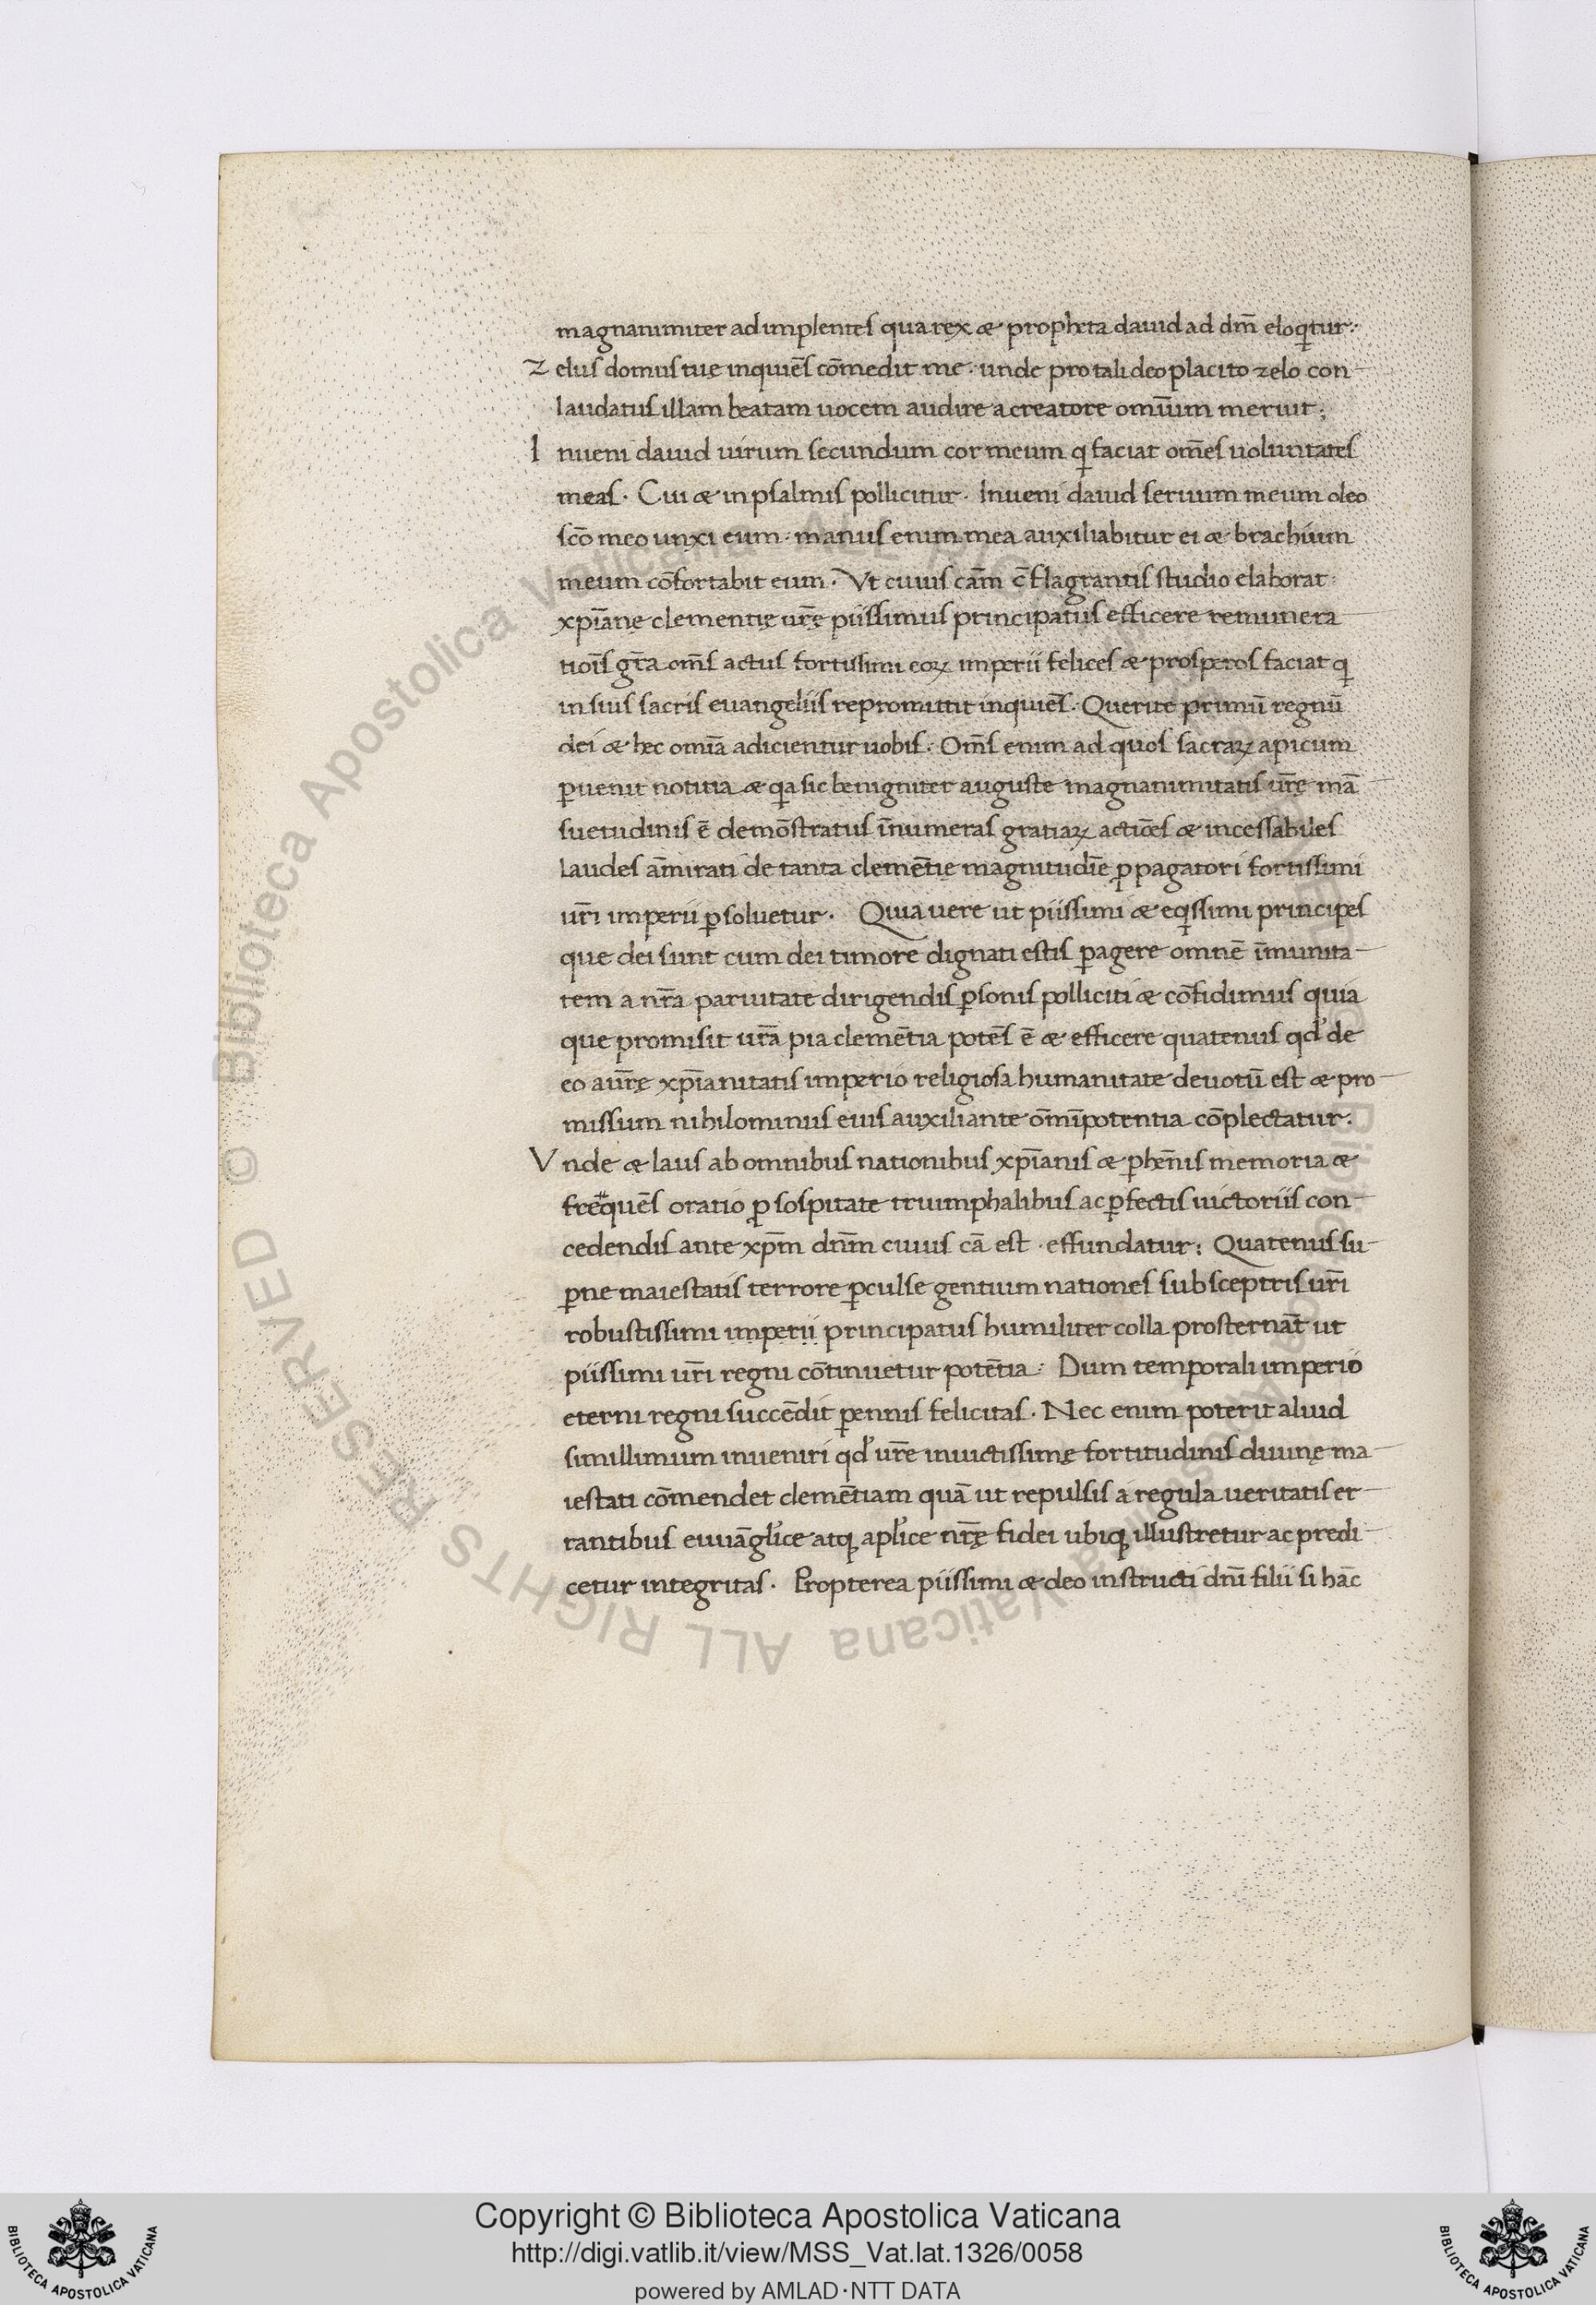 magnanimiter adimplentes qua rex & propheta dauid ad dm̄ eloqͥtur:·
Zelus domus tuę inquiēs cōmedit me · unde pro tali deo placito zelo con
laudatus illam beatam uocem audire a creatore omīum meruit;
Inueni dauid uirum secundum cor meum qͥ faciat om̄es uoluntates
meas · Cui & in psalmis pollicitur · Inueni dauid seruum meum oleo
sc̄o meo unxi eum · manus enim mea auxiliabitur ei & brachium
meum cōfortabit eum · Vt cuius cām c̄ flagrantis studio elaborat
xp̄ianę clementię ur̄ę piissimus principatus efficere remunera
tiois̄ gr̄a om̄s actus fortissimi eoꝝ imperii felices & prosperos faciat qͥ
in suis sacris euangeliis repromittit inquiēs · Querite primū regnū
dei & hec omīa adicientur uobis · Om̄s enim ad quos sacraꝝ apicum
ꝑuenit notitia & qͥa sic benigniter auguste magnanimitatis ur̄ę mā
suetudinis ē demōstratus īnumeras gratiaꝝ actiōes & incessabiles
laudes āmirati de tanta clemētię magnitudīe ꝓpagatori fortissimi
ur̄i imperii ꝑsoluetur · Quia uere ut piissimi & eqͥssimi principes
que dei sunt cum dei timore dignati estis ꝑagere omnē īmunita
tem a nr̄a paruitate dirigendis ꝑsonis polliciti & cōfidimus quia
que promisit ur̄a pia clemētia potēs ē & efficere quatenus qd̓ de
eo a ur̄ę xp̄ianitatis imperio religiosa humanitate deuotū est & pro
missum nihilominus eius auxiliante om̄īpotentia cōplectatur.
Vnde & laus ab omnibus nationibus xp̄ianis & ꝑhēnis memoria &
frequēs oratio ꝓ sospitate triumphalibus ac ꝑfectis uictoriis con
cedendis ante xp̄m dn̄m cuius cā est · effundatur: Quatenus su
ꝑne maiestatis terrore ꝑculse gentium nationes sub sceptris ur̄i
robustissimi imperii principatus humiliter colla prosternāt ut
piissimi ur̄i regni cōtinuetur potētia · Dum temporali imperio
eterni regni succēdit ꝑennis felicitas · Nec enim poterit aliud
simillimum inueniri qd̓ ur̄e inuictissimę fortitudinis diuinę ma
iestati cōmendet clemētiam quā ut repulsis a regula ueritatis er
rantibus euuāgl̓ice atqꝫ apl̓ice nr̄ę fidei ubiqꝫ illustretur ac predi
cetur integritas · Propterea piissimi & deo instructi dn̄i filii si hāc
Copyright © Biblioteca Apostolica Vaticana
http://digi.vatlib.it/view/MSS_Vat.lat.1326/0058
powered by AMLAD·NTT DATA
BIBLIOTECA APOSTOLICA VATICANA
BIBLIOTECA APOSTOLICA VATICANA
© Biblioteca Apostolica Vaticana ALL RIGHTS RESERVED